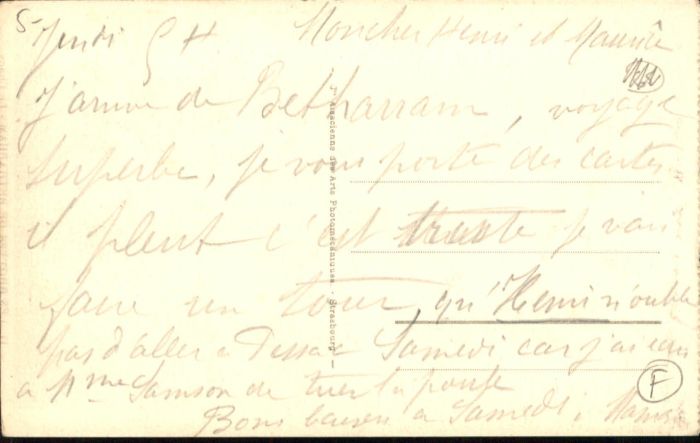 Jeudi 5 H Mon cher Henri et Maurice
J'arrive de Betharram, voyage
superbe, je vous porte des cartes
il pleut c'est triste je vais
faire un tour, qu'Henri n'oublie
pas d'aller a Pessac Samedi car j'ai ecris
a Mme Samson de tuer la poule
Bons baisers a Samedi
Cie Alsacienne des Arts Photomécaniques - Strasbourg
F